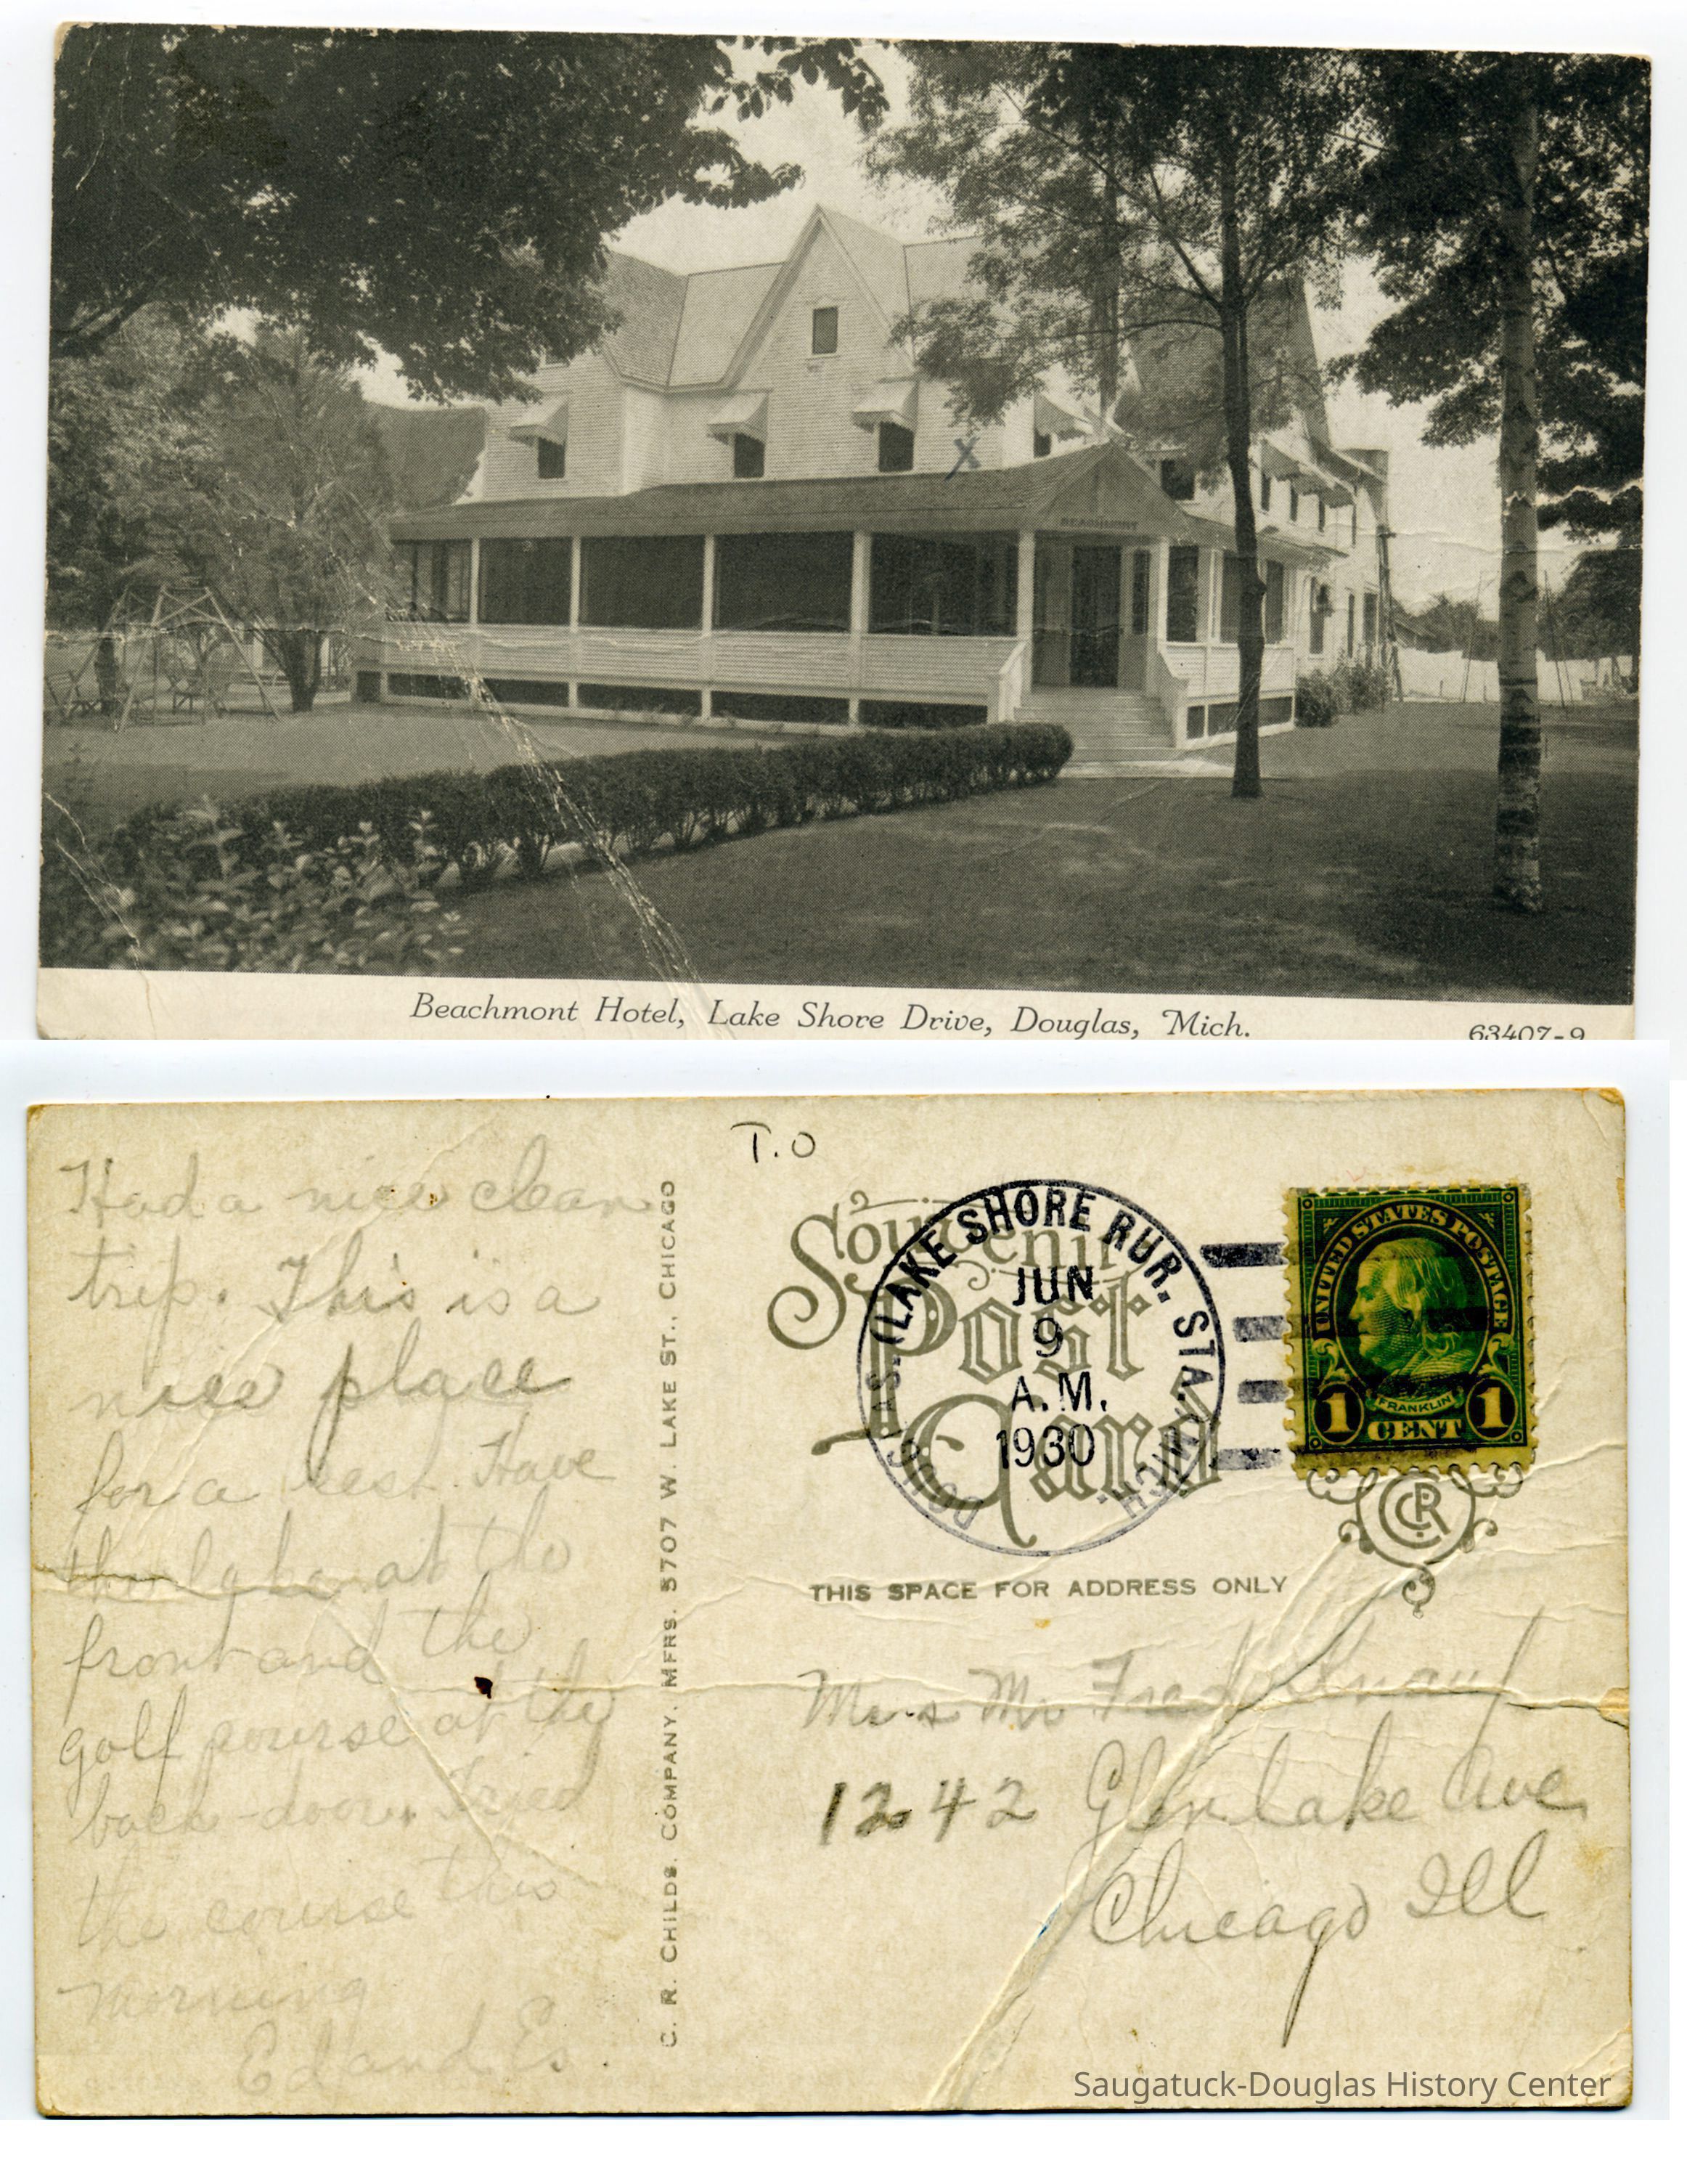 BEACHMONT
X
Beachmont Hotel, Lake Shore Drive, Douglas, Mich.
63407-9
T.O
Had a nice clean
trip. This is a
nice place
for a rest. Have
the lake at the
front and the
golf course at the
back-door. Tried
the course this
morning
Ed and Es.
C. R. CHILDS. COMPANY, MFRS. 5707 W. LAKE ST., CHICAGO
Souvenir
Post
Card
DOUGLAS. (LAKE SHORE RUR. STA.) MICH.
JUN
9
A.M.
1930
UNITED STATES POSTAGE
FRANKLIN
1 CENT 1
CRC
THIS SPACE FOR ADDRESS ONLY
Mrs Mr Fred
1242 Glenlake Ave.
Chicago Ill
Saugatuck-Douglas History Center